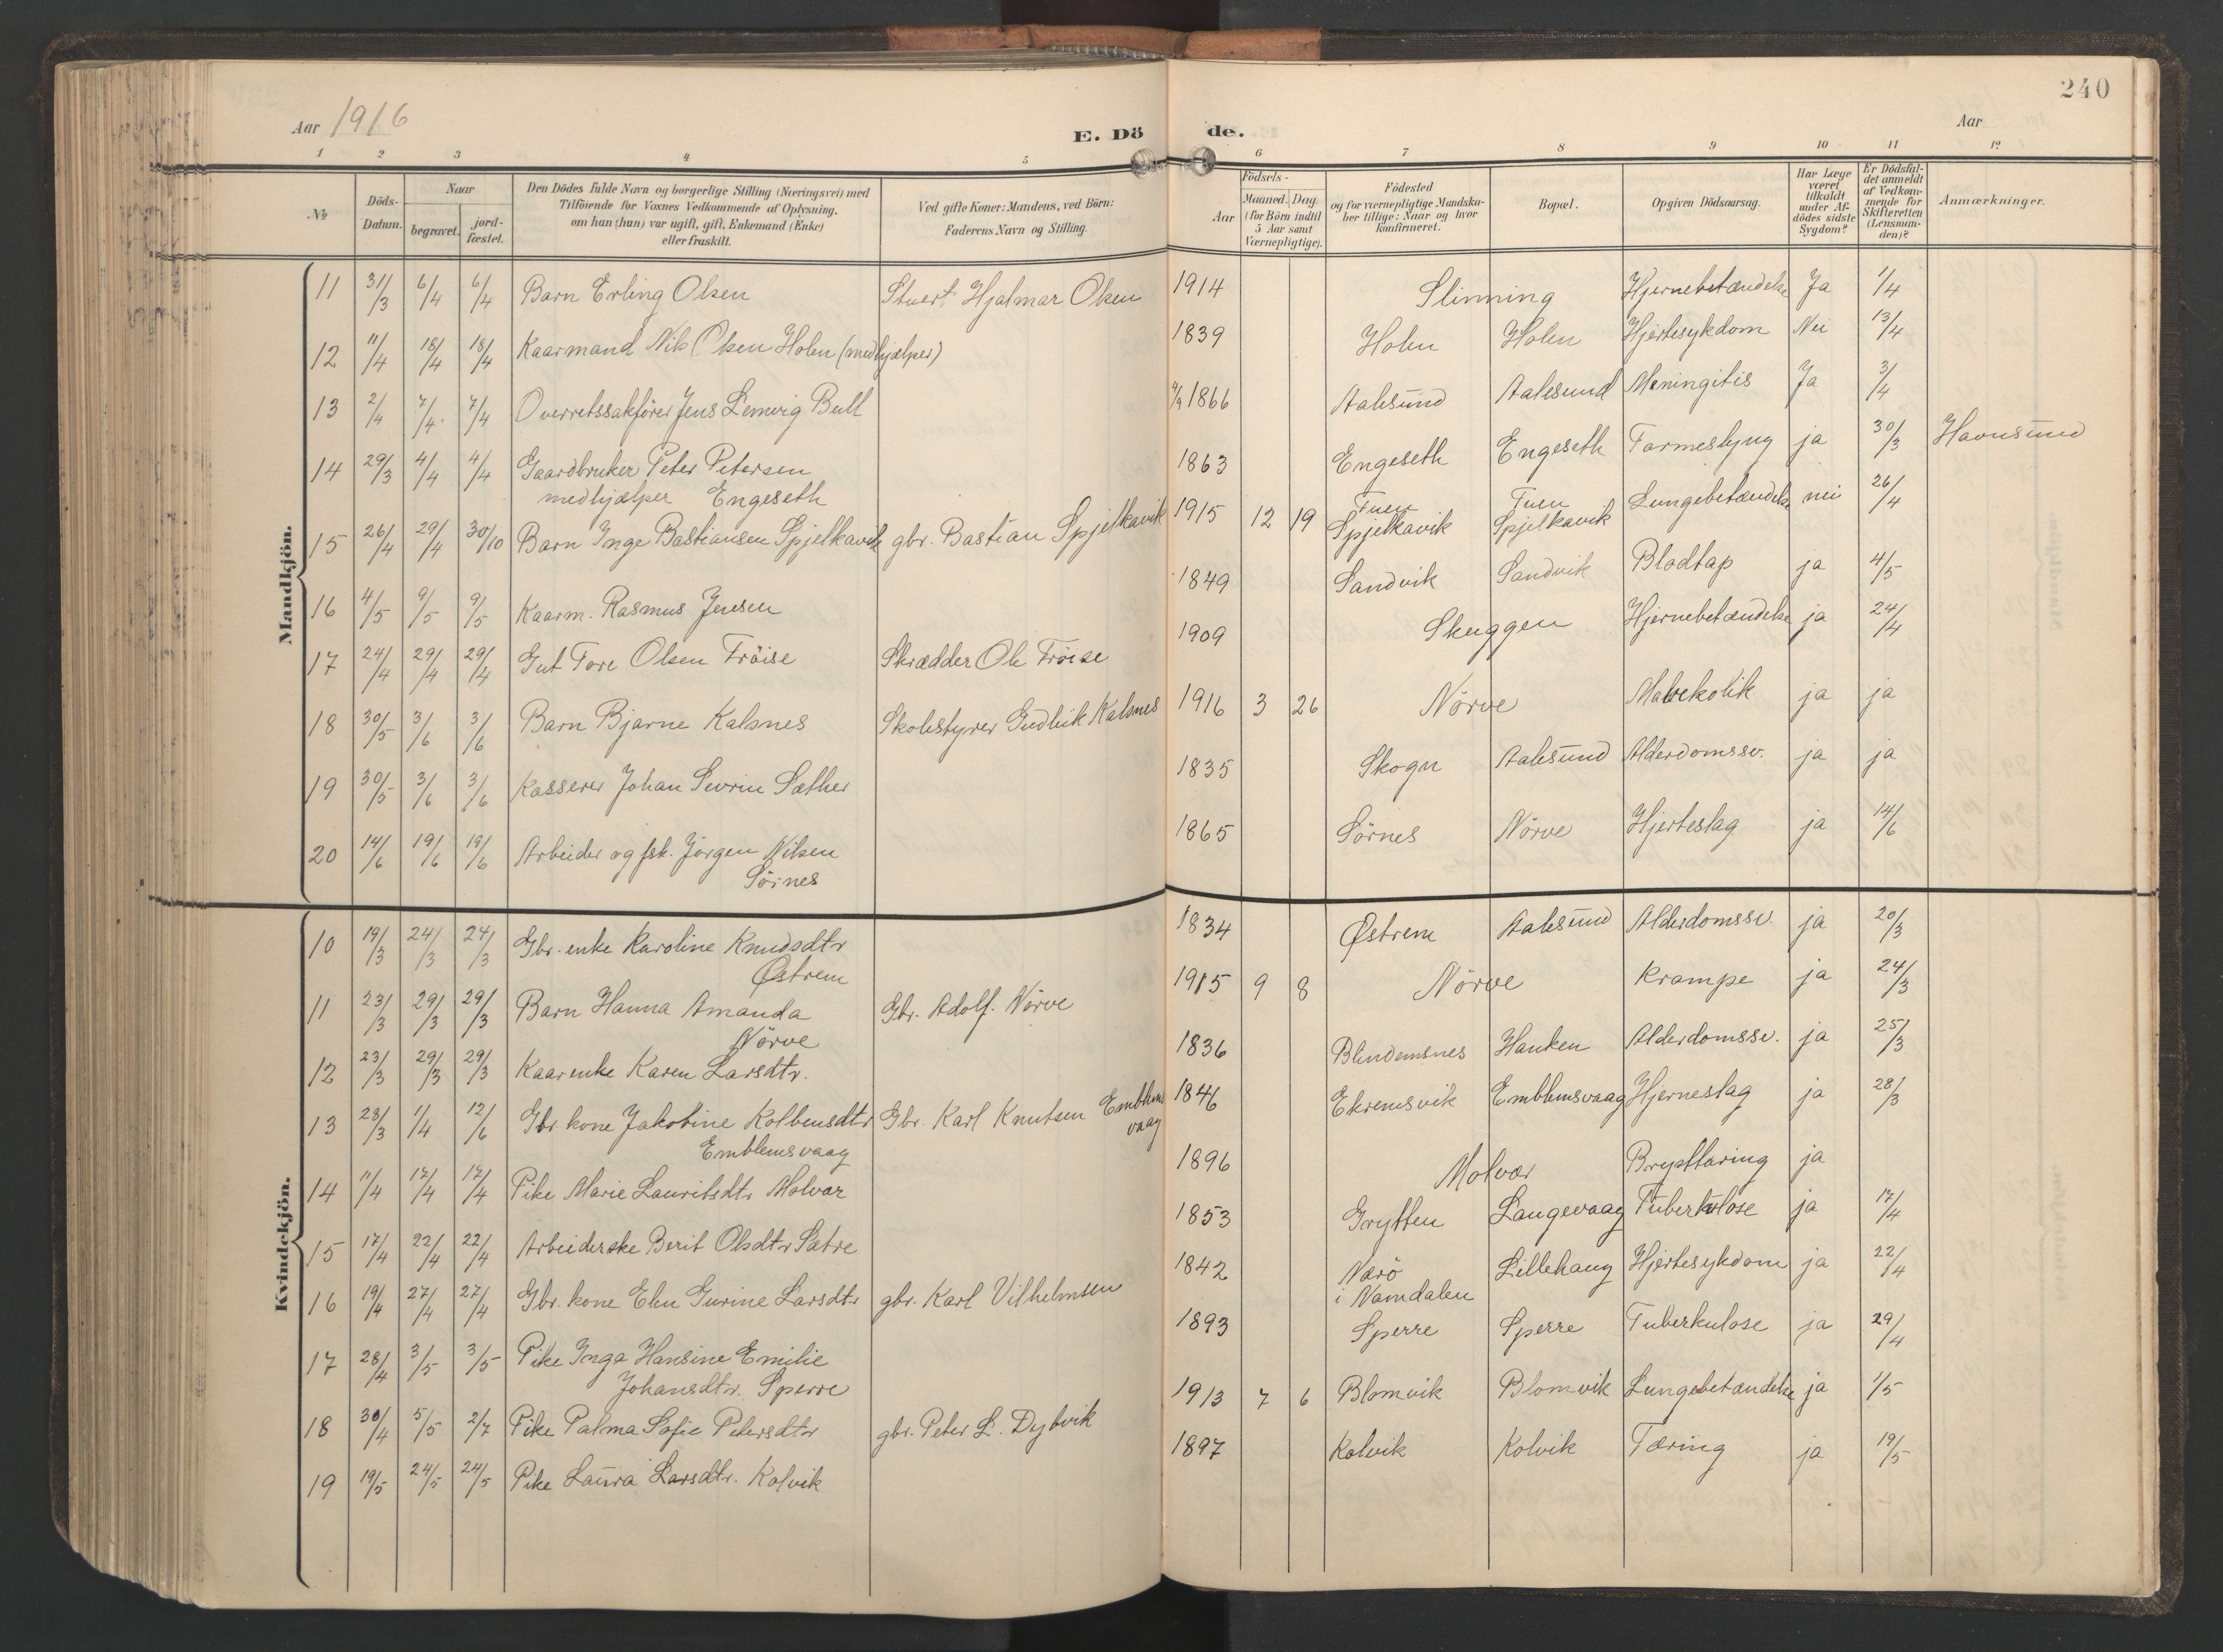 240
Aar 1916
E. Dö de.
Aar
1 2 3 4 5 6 7 8 9 10 11 12
№
Döds-Datum.
Naar
begravet.
jord-fæstet.
Den Dödes fulde Navn og borgerlige Stilling (Næringsvei) med
Tilföiende for Voxnes Vedkommende af Oplysning,
om han (hun) var ugift, gift, Enkemand (Enke)
eller fraskilt.
Ved gifte Koner: Mandens, ved Börn:
Faderens Navn og Stilling.
Födsels-
Aar
Maaned. Dag.
(for Börn indtil
5 Aar samt
Værnepligtige).
Födested
og for værnepligtige Mandska-
ber tillige: Naar og hvor
konfirmeret.
Bopæl.
Opgiven Dödsaarsag.
Har Læge
været
tilkaldt
under Af-
dödes sidste
Sygdom?
Er Dödsfal-
det anmeldt
af Vedkom-
mende for
Skifteretten
(Lensman-
den)?
Anmærkninger.
Mandkjön.
11 31/3 6/4 6/4 Barn Erling Olsen Stuert Hjalmar Olsen 1914 Slinning Hjernebetændelse Ja 1/4
12 11/4 18/4 18/4 Kaarmand Nils Olsen Holen (medhjælper) 1839 Holen Holen Hjertesykdom Nei 13/4
13 2/4 7/4 7/4 Overretssakfører Jens Lemvig Bull 4/9 1866 Aalesund Aalesund Meningitis Ja 3/4
14 29/3 4/4 4/4 Gaardbruker Peter Petersen 1863 Engeseth Engeseth Tarmeslyng ja 30/3 Havnsund
medhjælper Engeseth
15 26/4 29/4 30/10 Barn Inge Bastiansen Spjelkavik gbr. Bastian Spjelkavik 1915 12 19 Tuen Spjelkavik Tuen Spjelkavik Lungebetændelse nei 26/4
16 4/5 9/5 9/5 Kaarm. Rasmus Jensen 1849 Sandvik Sandvik Blodtap ja 4/5
17 24/4 29/4 29/4 Gut Tore Olsen Fröise Skrædder Ole Fröise 1909 Skuggen Hjernebetændelse ja 24/4
18 30/5 3/6 3/6 Barn Bjarne Kalsnes Skolestyrer Gudleik Kalsnes 1916 3 26 Nörve Mavekolik ja ja
19 30/5 3/6 3/6 Kasserer Johan Sevrin Sæther 1835 Skogn Aalesund Alderdomssv. ja ja
20 14/6 19/6 19/6 Arbeider og fsk. Jörgen Nilsen 1865 Sörnes Nörve Hjerteslag ja 14/6
Sörnes
Kvindekjön.
10 19/3 24/3 24/3 Gbr. enke Karoline Knudsdtr 1834 Østrem Aalesund Alderdomssv. ja 20/3
Østrem
11 23/3 29/3 29/3 Barn Hanna Amanda Gbr. Adolf. Nörve 1915 9 8 Nörve Krampe ja 24/3
Nörve
12 23/3 29/3 29/3 Kaarenke Karen Larsdtr. 1836 Blendemsnes Hanken Alderdomssv. ja 25/3
13 28/3 1/4 12/6 Gbr. kone Jakobine Kolbensdtr Gbr. Karl Knutsen Emblemsvaag 1846 Ekremsvik Emblemsvaag Hjerneslag ja 28/3
Emblemsvaag
14 11/4 17/4 17/4 Pike Marie Lauritsdtr Molvær 1896 Molvær Brysttæring ja
15 17/4 22/4 22/4 Arbeiderske Berit Olsdtr Sætre 1853 Grytten Langevaag Tuberkulose ja 17/4
16 19/4 27/4 27/4 Gbr. kone Elen Gurine Larsdtr gbr. Karl Vilhelmsen 1842 Nærö Lillehaug Hjertesykdom ja 22/4
i Namdalen
17 28/4 3/5 3/5 Pike Inga Hansine Emilie 1893 Sperre Sperre Tuberkulose ja 29/4
Johansdtr. Sperre
18 30/4 5/5 2/7 Pike Palma Sofie Petersdtr gbr. Peter L. Dybvik 1913 7 6 Blomvik Blomvik Lungebetændelse ja 1/5
19 19/5 24/5 24/5 Pike Laura Larsdtr. Kolvik 1897 Kolvik Kolvik Tæring ja 19/5